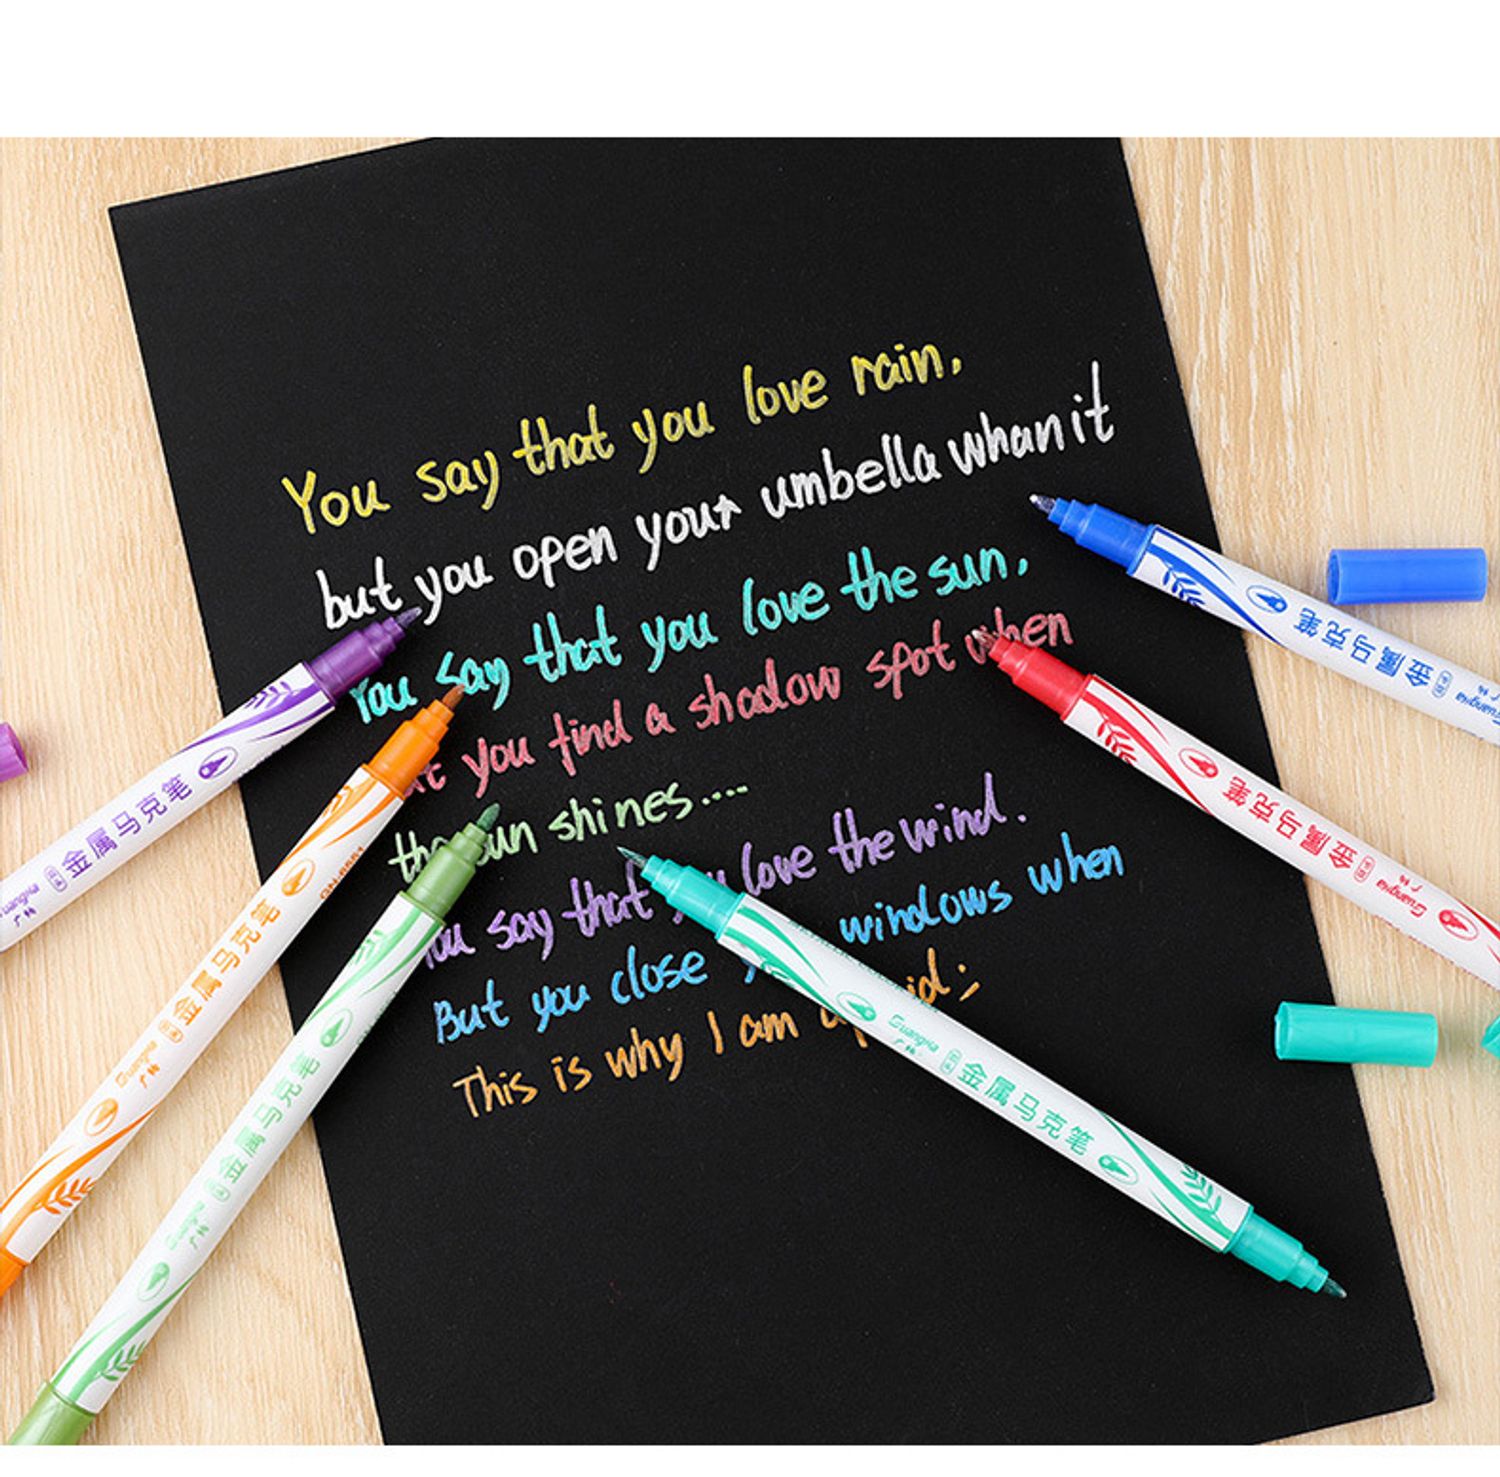 You say that you love rain,
but you open your umbella whan it
You say that you love the sun,
you find a shadow spot when
sun shines....
say that love the wind.
But you close windows when
This is why I am
金属马克笔
金属马克笔
QN-8551
Guangna
金属马克笔
Guangna
金属马克笔
Guangna
金属马克笔
Guangna
金属马克笔